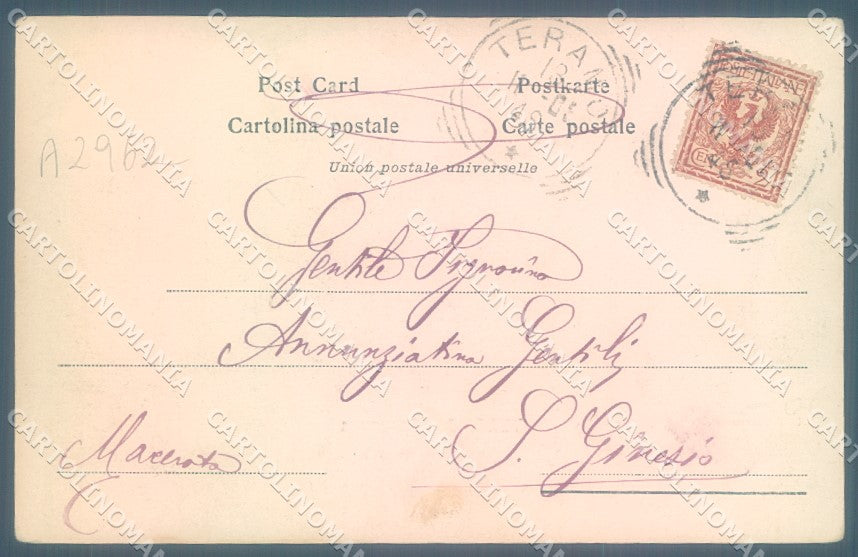 TERAMO
POSTE ITALIANE
Post Card Postkarte
Cartolina postale Carte postale
A 296
Union postale universelle
Gentile Signorina
Annunziatina Gentili
S. Ginesio
Macerata
CARTOLINOMANIA